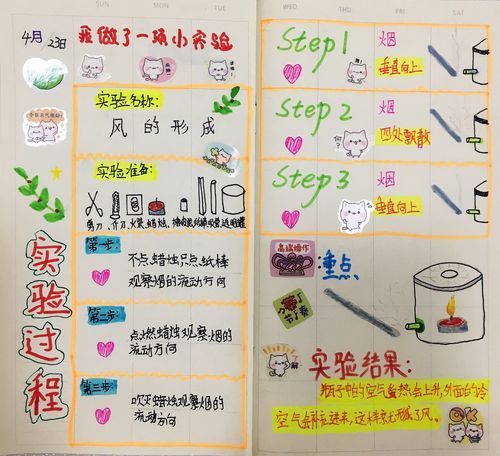 SUN MON TUE
4月23日
我做了一项小实验
实验名称:
风的形成
实验准备:
剪刀、介刀、火柴、蜡烛、
第一步:
不点蜡烛只点纸棒
观察烟的流动方向
第二步:
点燃蜡烛观察烟的
流动方向
第三步:
吹灭蜡烛观察烟的
流动方向
实验过程
WED THU FRI SAT
Step1 烟
垂直向上
Step2 烟
四处飘散
Step3 烟
垂直向上
高端操作
:重点
实验结果:
瓶子中的空气受热会上升,外面的冷
空气会补充进来,这样就形成了风。